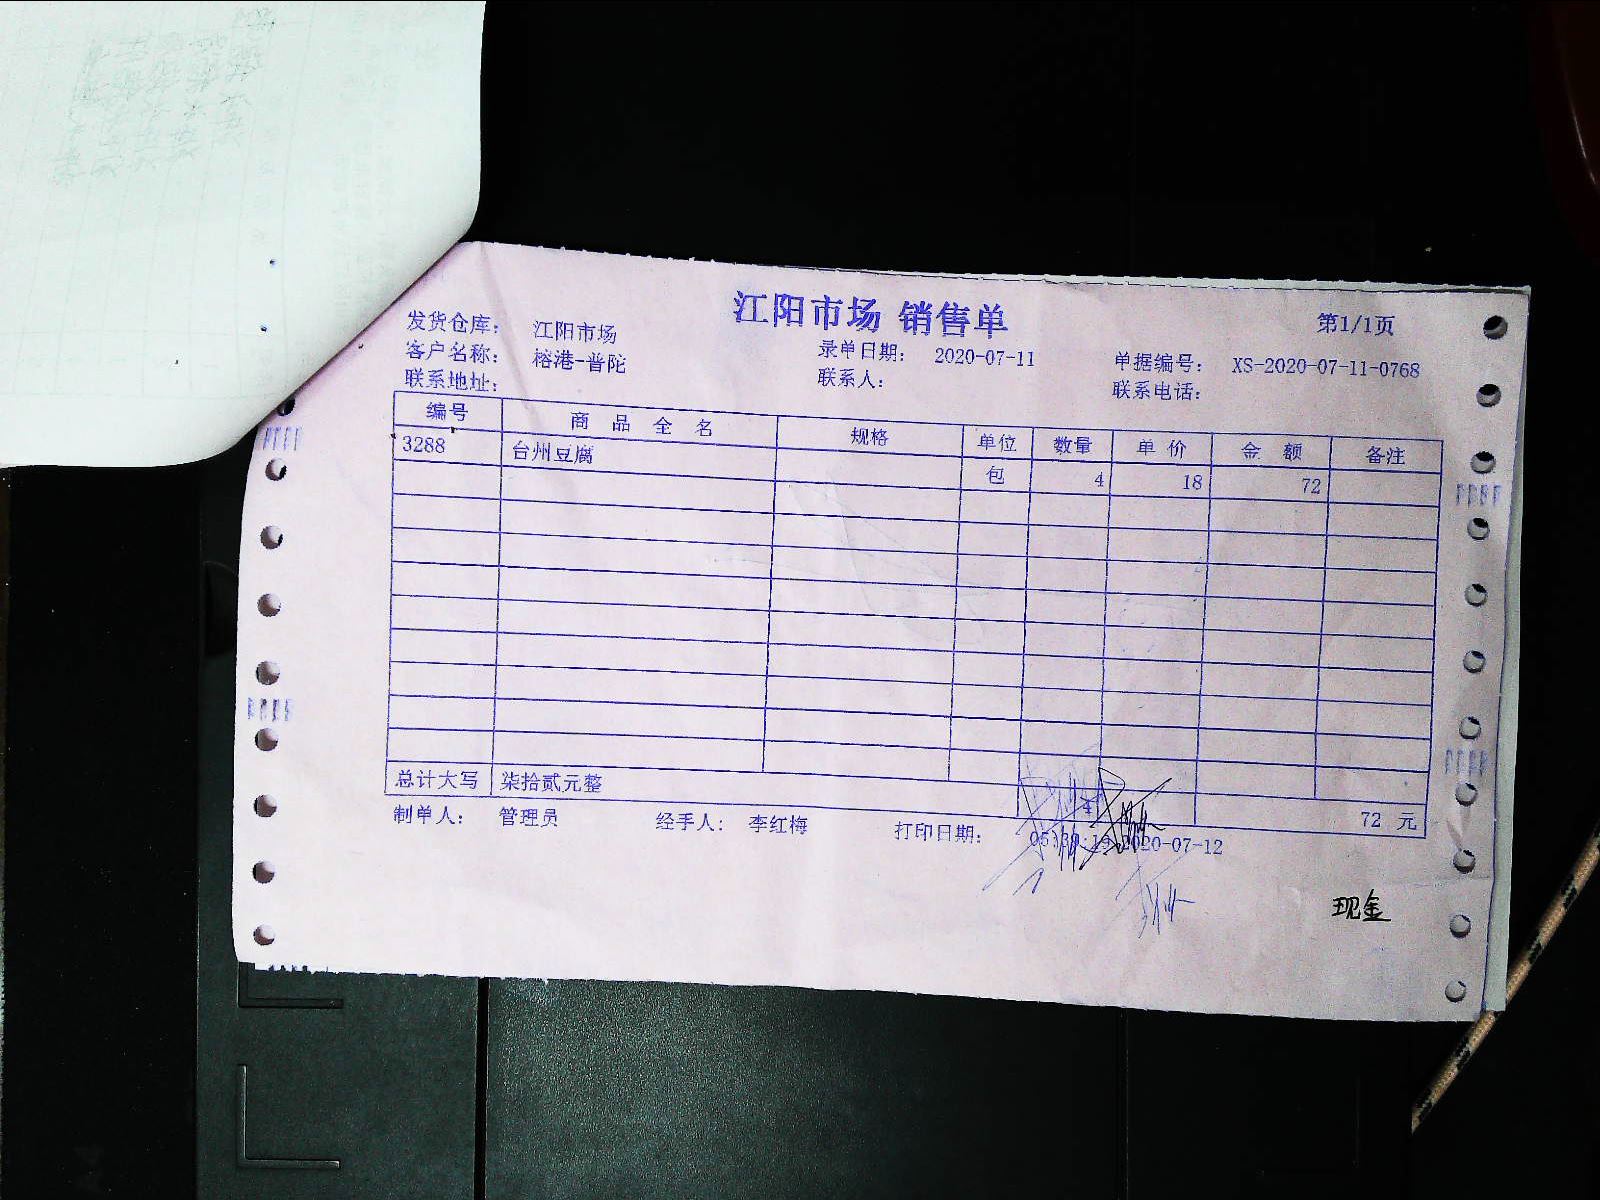 江阳市场 销售单
第1/1页
发货仓库： 江阳市场
客户名称： 榕港-普陀 录单日期： 2020-07-11 单据编号： XS-2020-07-11-0768
联系地址： 联系人： 联系电话：
编号 商品全名 规格 单位 数量 单价 金额 备注
3288 台州豆腐 包 4 18 72
总计大写 柒拾贰元整 4 72 元
制单人： 管理员 经手人： 李红梅 打印日期： 2020-07-12
现金